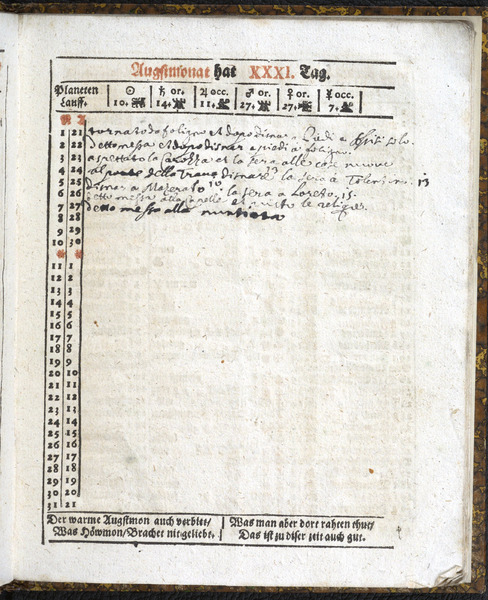 Augstmonat hat XXXI. Tag.
Planeten ☉ ♄ or. ♃ occ. ♂ or. ♀ or. ☿ occ.
Lauff. 10. 14. 11. 27. 27. 7.
1 21 tornato da foligno et dopo disnar a piedi a
2 22 detto messa et dopo disnar a piedi a foligno
3 23 aspettato la Carozza et la sera alle case nuove
4 24 al ponte della disnar la sera a Tolentino 15
5 25 disnar a Macerata 10 la sera a Loreto 15.
6 26 detto messa alla Capelle et visto le reliquie.
7 27 detto messo alla nuntiata
8 28
9 29
10 30
11 1
12 2
13 3
14 4
15 5
16 6
17 7
18 8
19 9
20 10
21 11
22 12
23 13
24 14
25 15
26 16
27 17
28 18
29 19
30 20
31 21
Der warme Augstmon auch verbiet/
Was Höwmon/Brachet nit geliebt.
Was man aber dort rahten thut/
Das ist zu diser zeit auch gut.